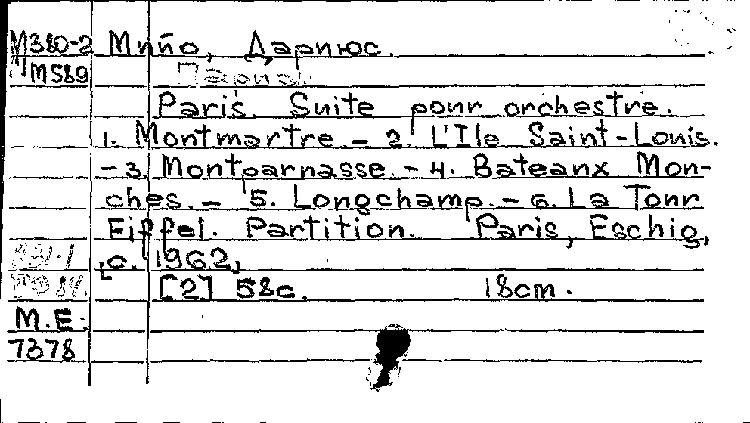 М380-2 Мийо, Дариюс.
М589
Paris. Suite pour orchestre.
1. Montmartre. - 2. L'Ile Saint-Louis.
- 3. Montparnasse. - 4. Bateaux Mou-
ches. - 5. Longchamp. - 6. La Tour
Eiffel. Partition. Paris, Eschig,
[c. 1962]
[2] 58c. 18cm.
M.E.
7378